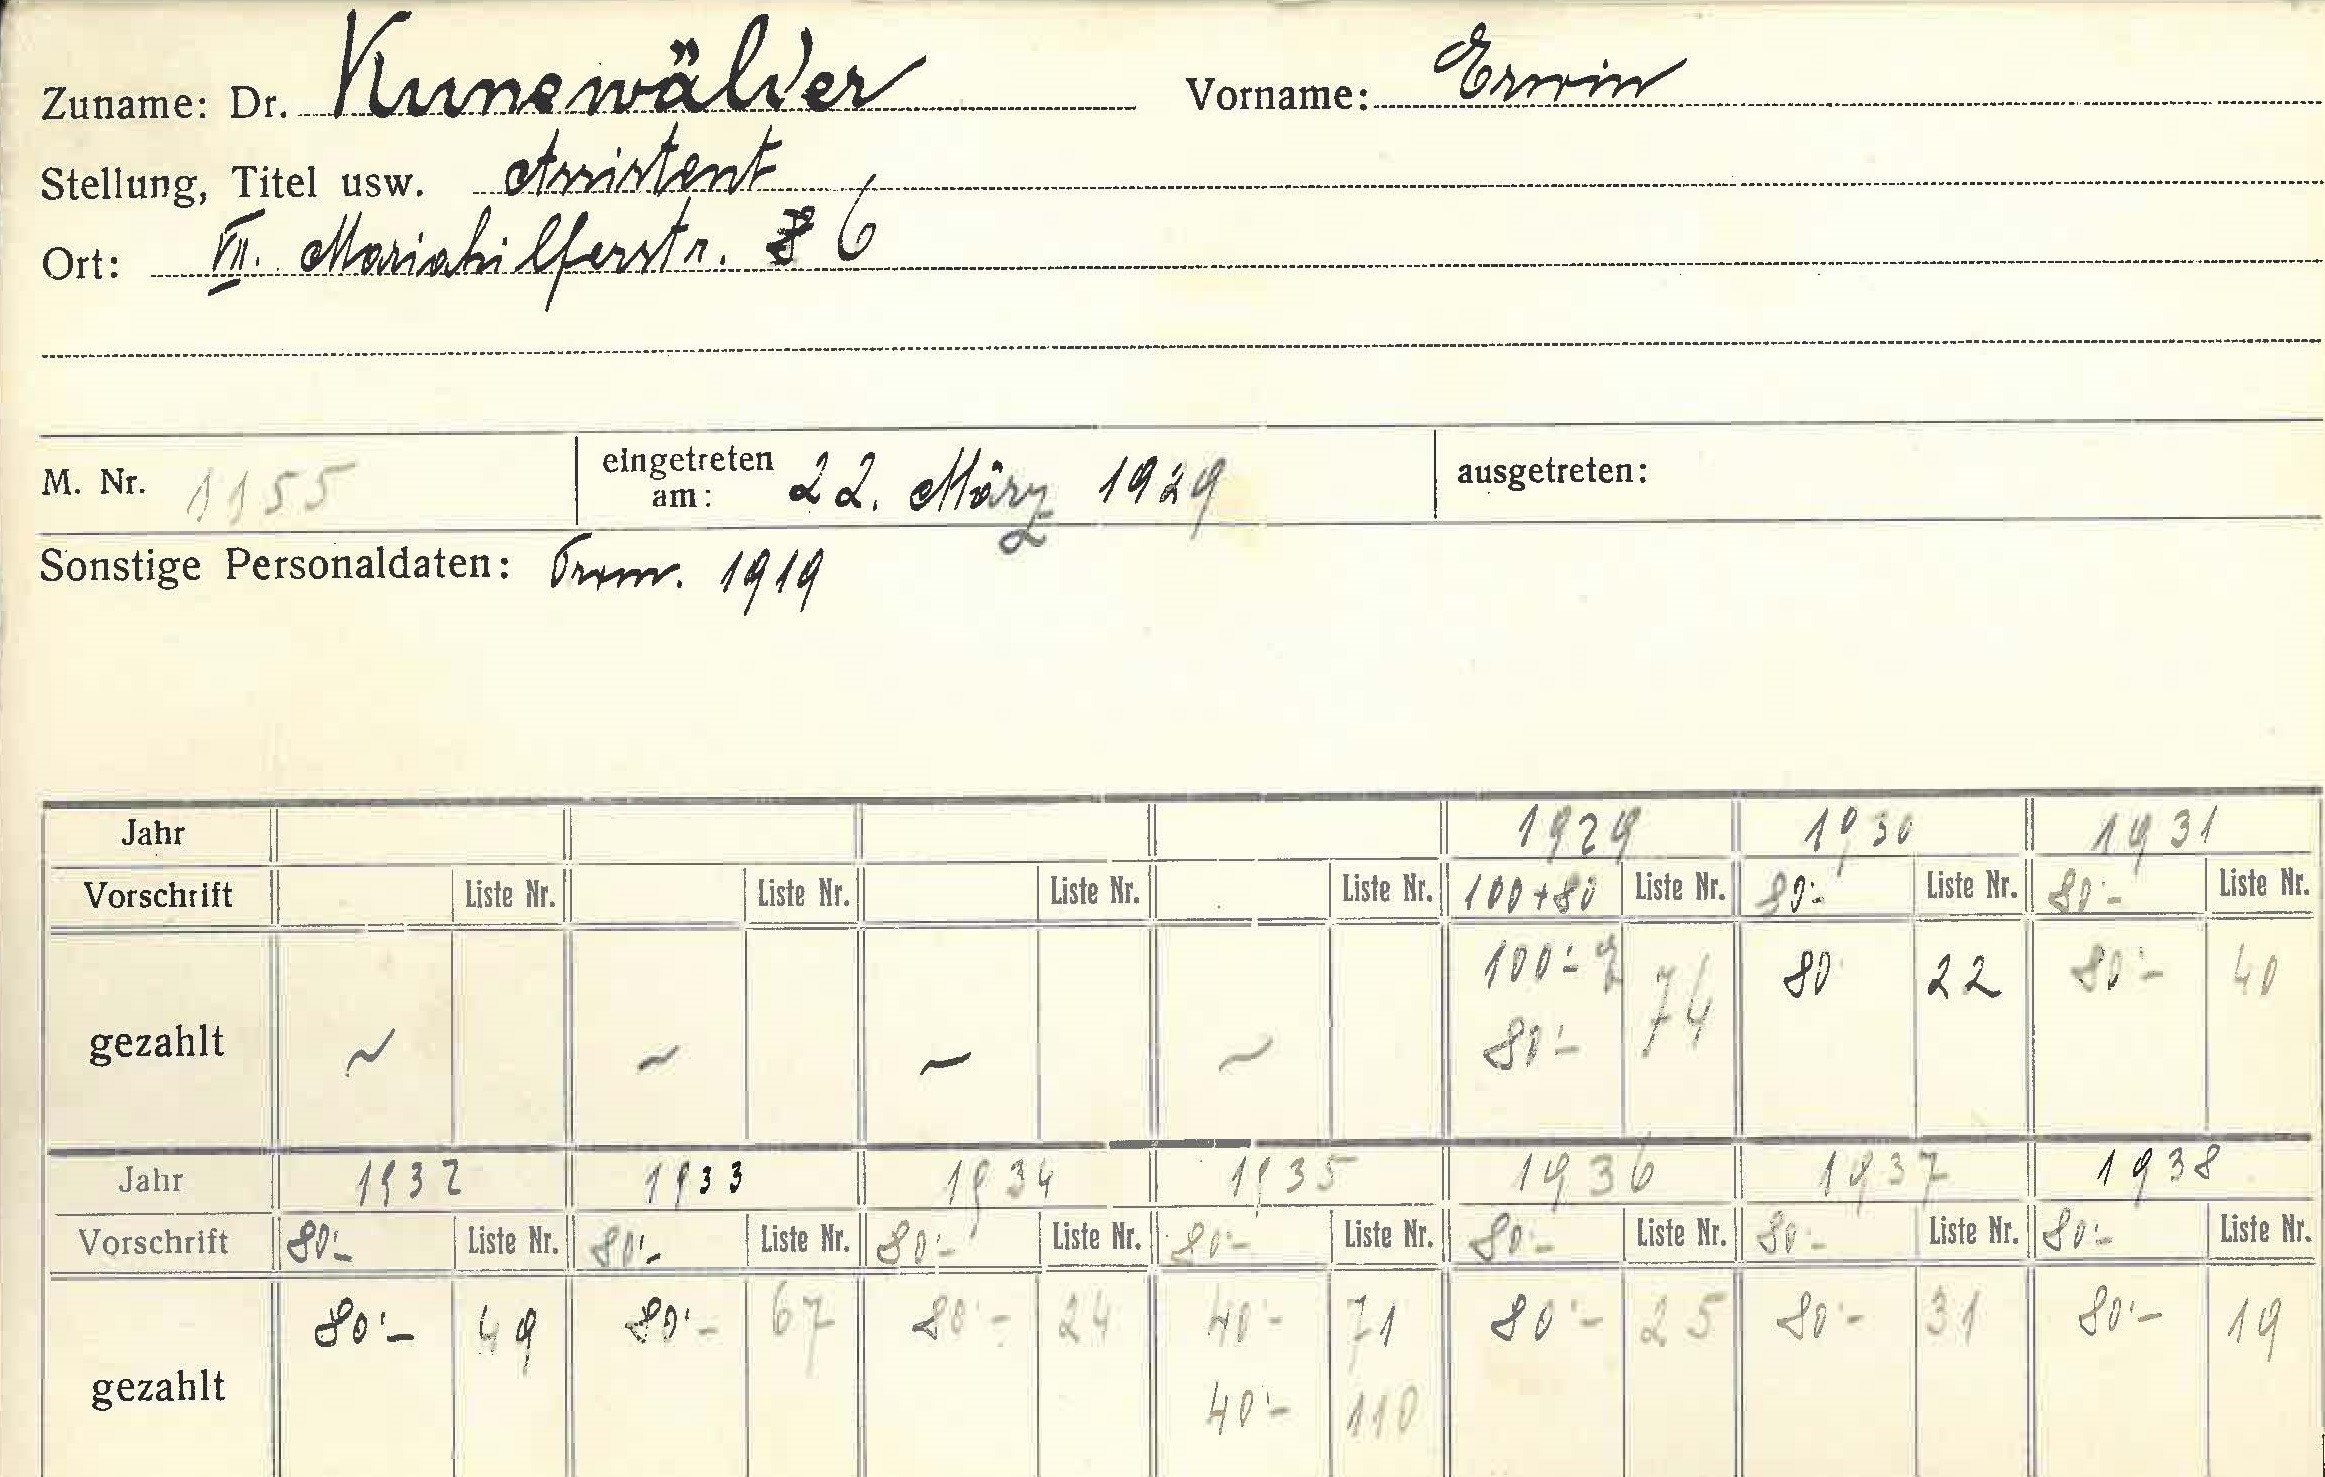 Zuname: Dr. Kunewälder Vorname: Erwin
Stellung, Titel usw. Assistent
Ort: VII. Mariahilferstr. 8 6
M. Nr. 1155 eingetreten am: 22. März 1929 ausgetreten:
Sonstige Personaldaten: Prom. 1919
Jahr 1929 1930 1931
Vorschrift Liste Nr. Liste Nr. Liste Nr. Liste Nr. 100+80 Liste Nr. 80.- Liste Nr. 80.- Liste Nr.
gezahlt ~ ~ ~ ~ 100.- 74 80 22 80.- 40
80.-
Jahr 1932 1933 1934 1935 1936 1937 1938
Vorschrift 80.- Liste Nr. 80.- Liste Nr. 80.- Liste Nr. 80.- Liste Nr. 80.- Liste Nr. 80.- Liste Nr. 80.- Liste Nr.
gezahlt 80.- 49 80.- 67 80.- 24 40.- 71 80.- 25 80.- 31 80.- 19
40.- 110